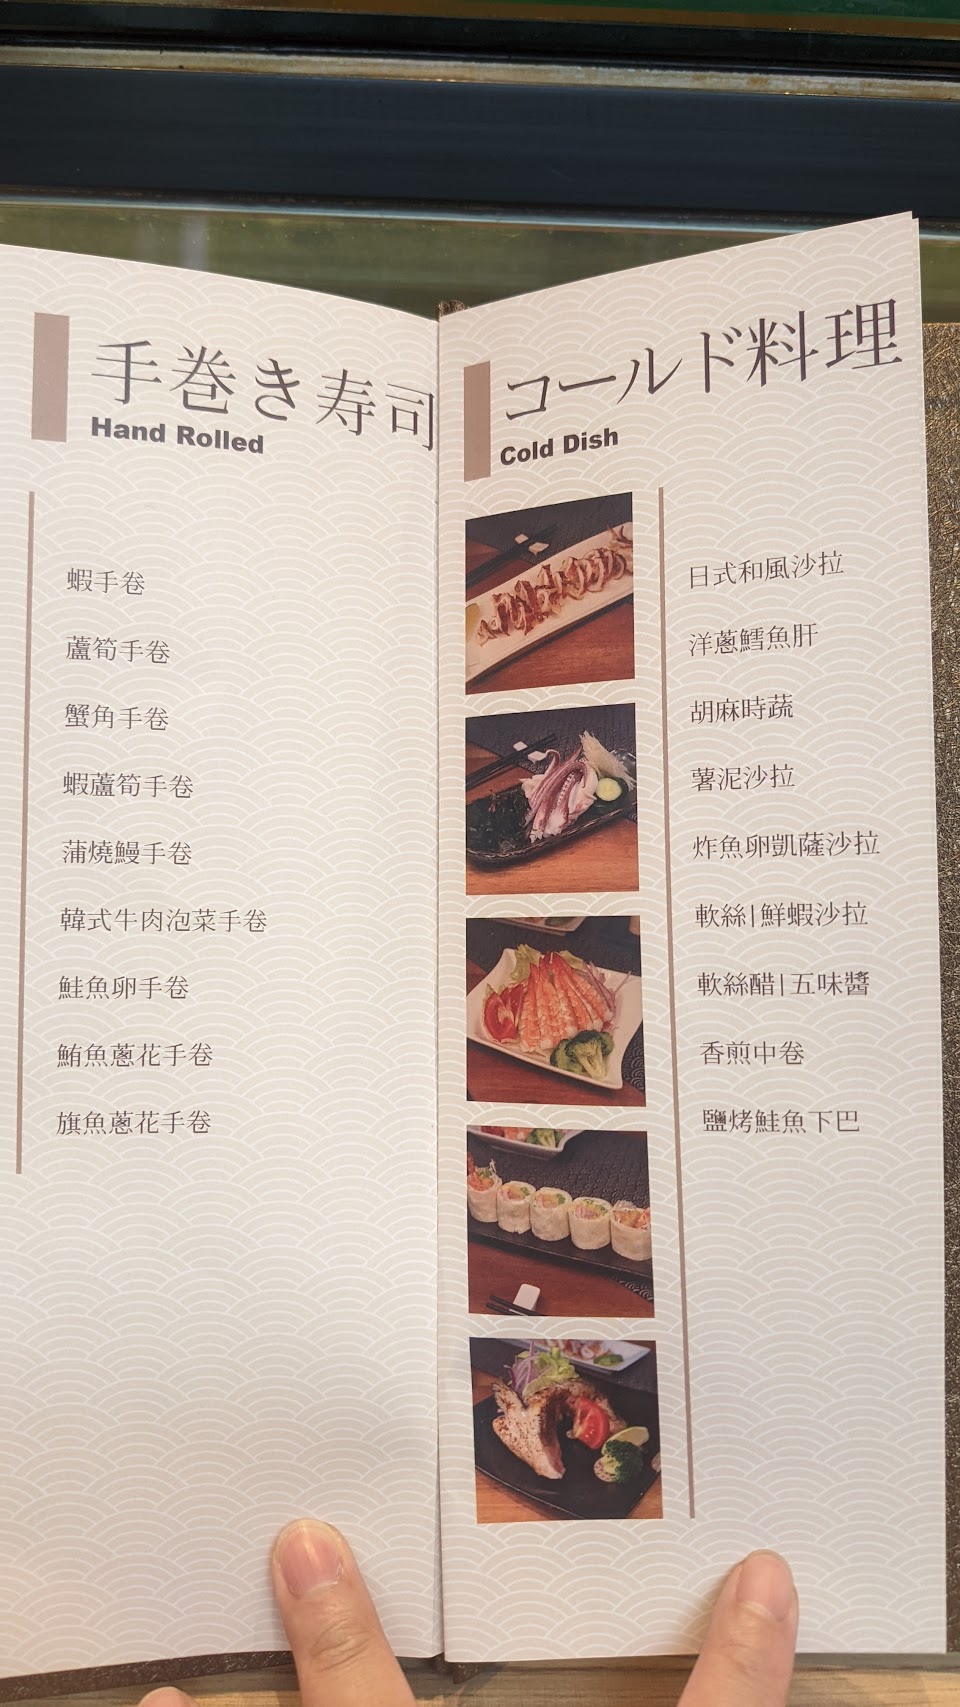 手巻き寿司
Hand Rolled
蝦手卷
蘆筍手卷
蟹角手卷
蝦蘆筍手卷
蒲燒鰻手卷
韓式牛肉泡菜手卷
鮭魚卵手卷
鮪魚蔥花手卷
旗魚蔥花手卷
コールド料理
Cold Dish
日式和風沙拉
洋蔥鱈魚肝
胡麻時蔬
薯泥沙拉
炸魚卵凱薩沙拉
軟絲|鮮蝦沙拉
軟絲醋|五味醬
香煎中卷
鹽烤鮭魚下巴